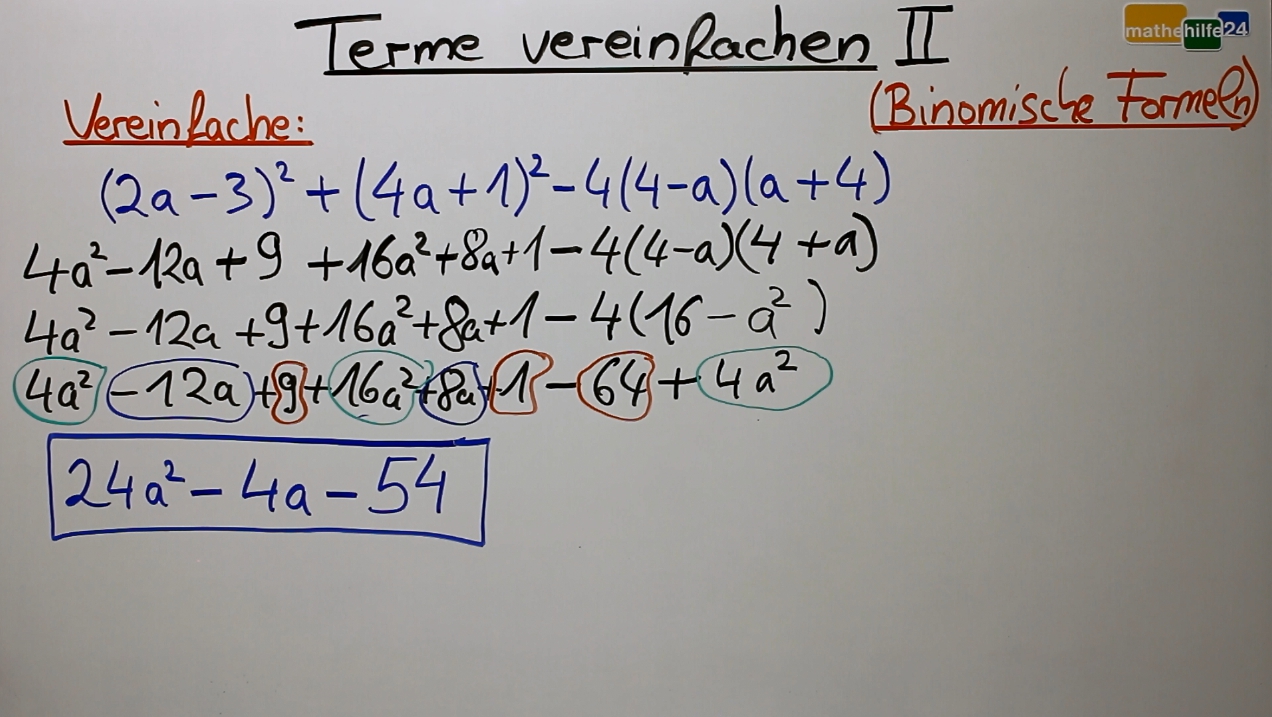 Terme vereinfachen II
mathehilfe24
(Binomische Formeln)
Vereinfache:
(2a-3)² + (4a+1)² - 4(4-a)(a+4)
4a² - 12a + 9 + 16a² + 8a + 1 - 4(4-a)(4+a)
4a² - 12a + 9 + 16a² + 8a + 1 - 4(16 - a²)
4a² - 12a + 9 + 16a² + 8a + 1 - 64 + 4a²
24a² - 4a - 54